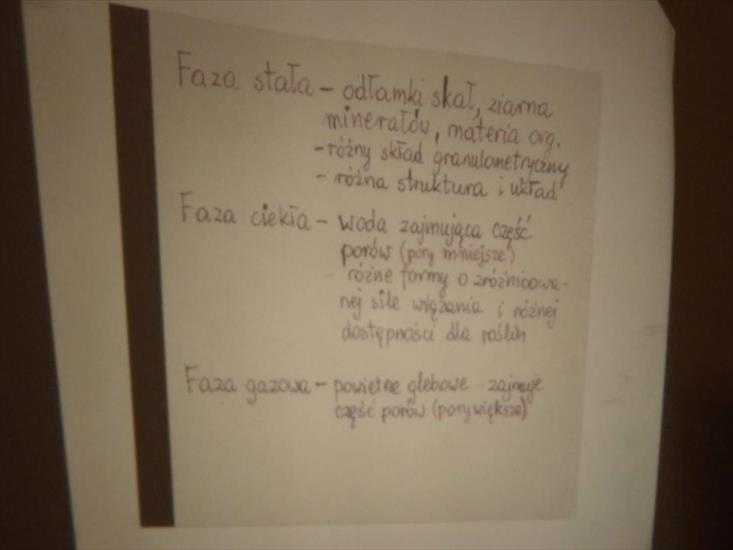 Faza stała - odłamki skał, ziarna
minerałów, materia org.
- różny skład granulometryczny
- różna struktura i układ
Faza ciekła - woda zajmująca część
porów (pory mniejsze)
- różne formy o zróżnicowa-
nej sile wiązania i różnej
dostępności dla roślin
Faza gazowa - powietrze glebowe zajmuje
część porów (pory większe)